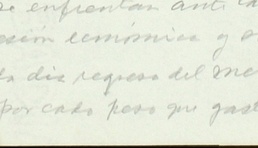 se enfrentan ante la
esión económica y s
da dia regresa del me
por cada peso que gast